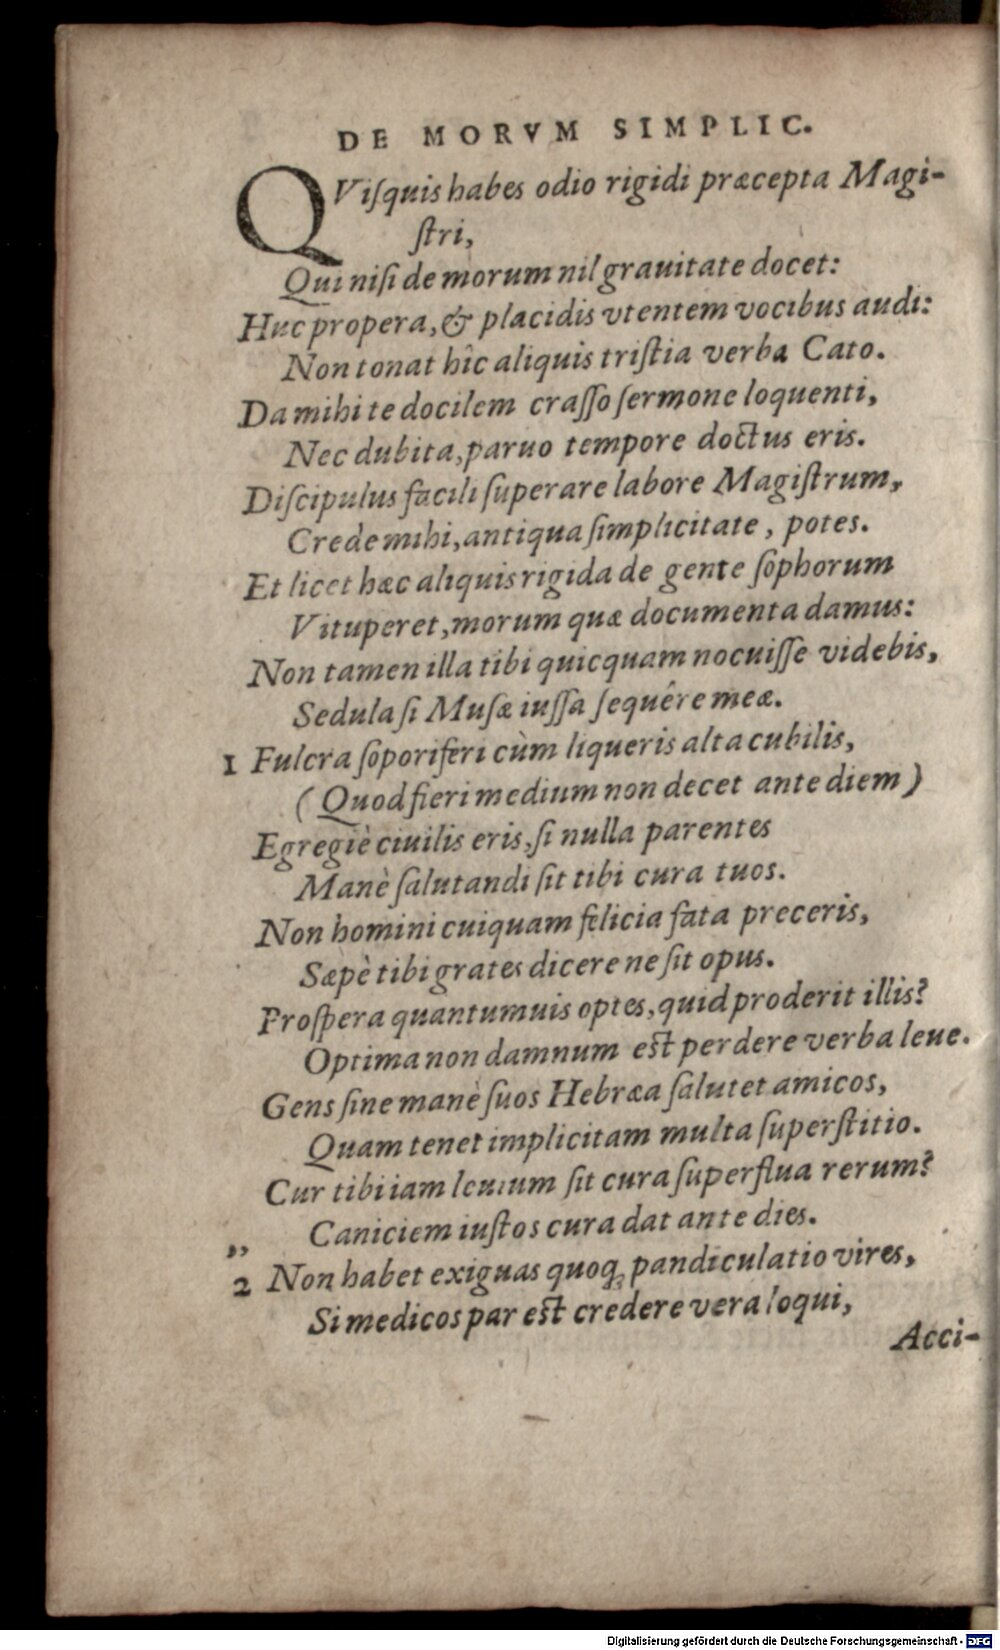 DE MORVM SIMPLIC.
QViſquis habes odio rigidi præcepta Magi-
ſtri,
Qui niſi de morum nil grauitate docet:
Huc propera, & placidis vtentem vocibus audi:
Non tonat hîc aliquis triſtia verba Cato.
Da mihi te docilem craſſo ſermone loquenti,
Nec dubita, paruo tempore doctus eris.
Diſcipulus facili ſuperare labore Magiſtrum,
Crede mihi, antiqua ſimplicitate, potes.
Et licet hæc aliquis rigida de gente ſophorum
Vituperet, morum quæ documenta damus:
Non tamen illa tibi quicquam nocuiſſe videbis,
Sedula ſi Muſæ iuſſa ſequêre meæ.
1 Fulcra ſoporiferi cùm liqueris alta cubilis,
(Quod fieri medium non decet ante diem)
Egregiè ciuilis eris, ſi nulla parentes
Manè ſalutandi ſit tibi cura tuos.
Non homini cuiquam felicia fata preceris,
Sæpè tibi grates dicere ne ſit opus.
Proſpera quantumuis optes, quid proderit illis?
Optima non damnum eſt perdere verba leue.
Gens ſine manè ſuos Hebræa ſalutet amicos,
Quam tenet implicitam multa ſuperſtitio.
Cur tibi iam leuium ſit cura ſuperflua rerum?
Caniciem iuſtos cura dat ante dies.
”
2 Non habet exiguas quoq; pandiculatio vires,
Si medicos par eſt credere vera loqui,
Acci-
Digitalisierung gefördert durch die Deutsche Forschungsgemeinschaft - DFG